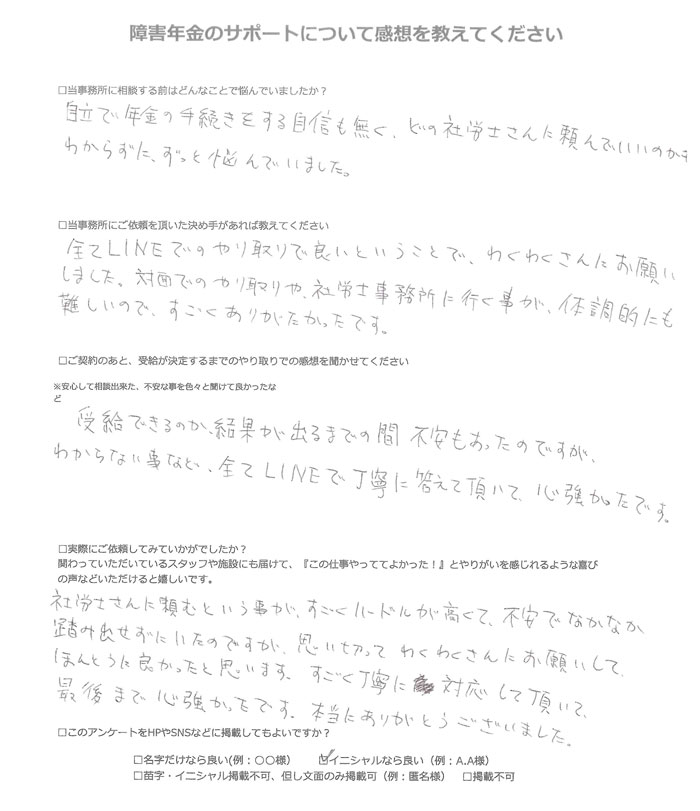 障害年金のサポートについて感想を教えてください
□当事務所に相談する前はどんなことで悩んでいましたか？
自立で年金の手続きをする自信も無く、どの社労士さんに頼んでいいのかも
わからずに、ずっと悩んでいました。
□当事務所にご依頼を頂いた決め手があれば教えてください
全てLINEでのやり取りで良いということで、わくわくさんにお願い
しました。対面でのやり取りや、社労士事務所に行く事が、体調的にも
難しいので、すごくありがたかったです。
□ご契約のあと、受給が決定するまでのやり取りでの感想を聞かせてください
※安心して相談出来た、不安な事を色々と聞けて良かったな
ど
受給できるのか、結果が出るまでの間 不安もあったのですが、
わからない事など、全てLINEで丁寧に答えて頂いて、心強かったです。
□実際にご依頼してみていかがでしたか？
関わっていただいているスタッフや施設にも届けて、『この仕事やっててよかった！』とやりがいを感じれるような喜び
の声などいただけると嬉しいです。
社労士さんに頼むという事が、すごくハードルが高くて、不安でなかなか
踏み出せずにいたのですが、思い切って わくわくさんにお願いして、
ほんとうに良かったと思います。すごく丁寧に 対応して頂いて、
最後まで心強かったです。本当にありがとうございました。
□このアンケートをHPやSNSなどに掲載してもよいですか？
□名字だけなら良い(例：〇〇様） ☑イニシャルなら良い（例：A.A様）
□苗字・イニシャル掲載不可、但し文面のみ掲載可（例：匿名様） □掲載不可